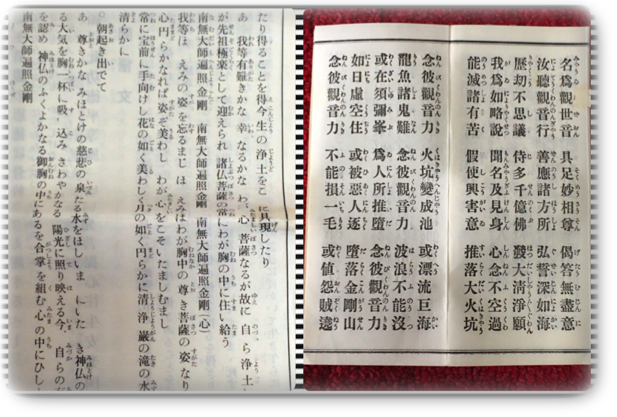 名爲觀世音 具足妙相尊 偈答無盡意
汝聽觀音行 善應諸方所 弘誓深如海
歷劫不思議 侍多千億佛 發大淸淨願
我爲如略說 聞名及見身 心念不空過
能滅諸有苦 假使興害意 推落大火坑
念彼觀音力 火坑變成池 或漂流巨海
龍魚諸鬼難 念彼觀音力 波浪不能沒
或在須彌峯 爲人所推墮 念彼觀音力
如日虛空住 或被惡人逐 墮落金剛山
念彼觀音力 不能損一毛 或値怨賊遶
たり得ることを得今生の浄土をこゝに具現したり
あゝ 我等有難きかな 幸なるかな わが心 菩薩なるが故に 自ら浄土
が先祖極楽として迎えられ 諸仏菩薩の常にわが胸の中に住し給う
南無大師遍照金剛 南無大師遍照金剛 南無大師遍照金剛(心)
我等は えみの姿を忘るまじ ほゝえみはわが胸中の尊き菩薩の姿なり
心円らかなれば姿ぞ美わし わが心をこそいたましむまじ
常に宝前に手向けし 花の如く美わし 月の如く円らかに 清浄 巌の滝の水
清らかに
朝起き出でて
あゝ 尊きかな みほとけの慈悲の泉たる水をほしいまゝにいたゞき神仏の
る大気を胸一杯に吸い込み さわやかなる 陽光に照り映える今、自らの
を認め 神仏のふくよかなる御胸の中にあるを合掌を組む心の中にひし
南無大師遍照金剛